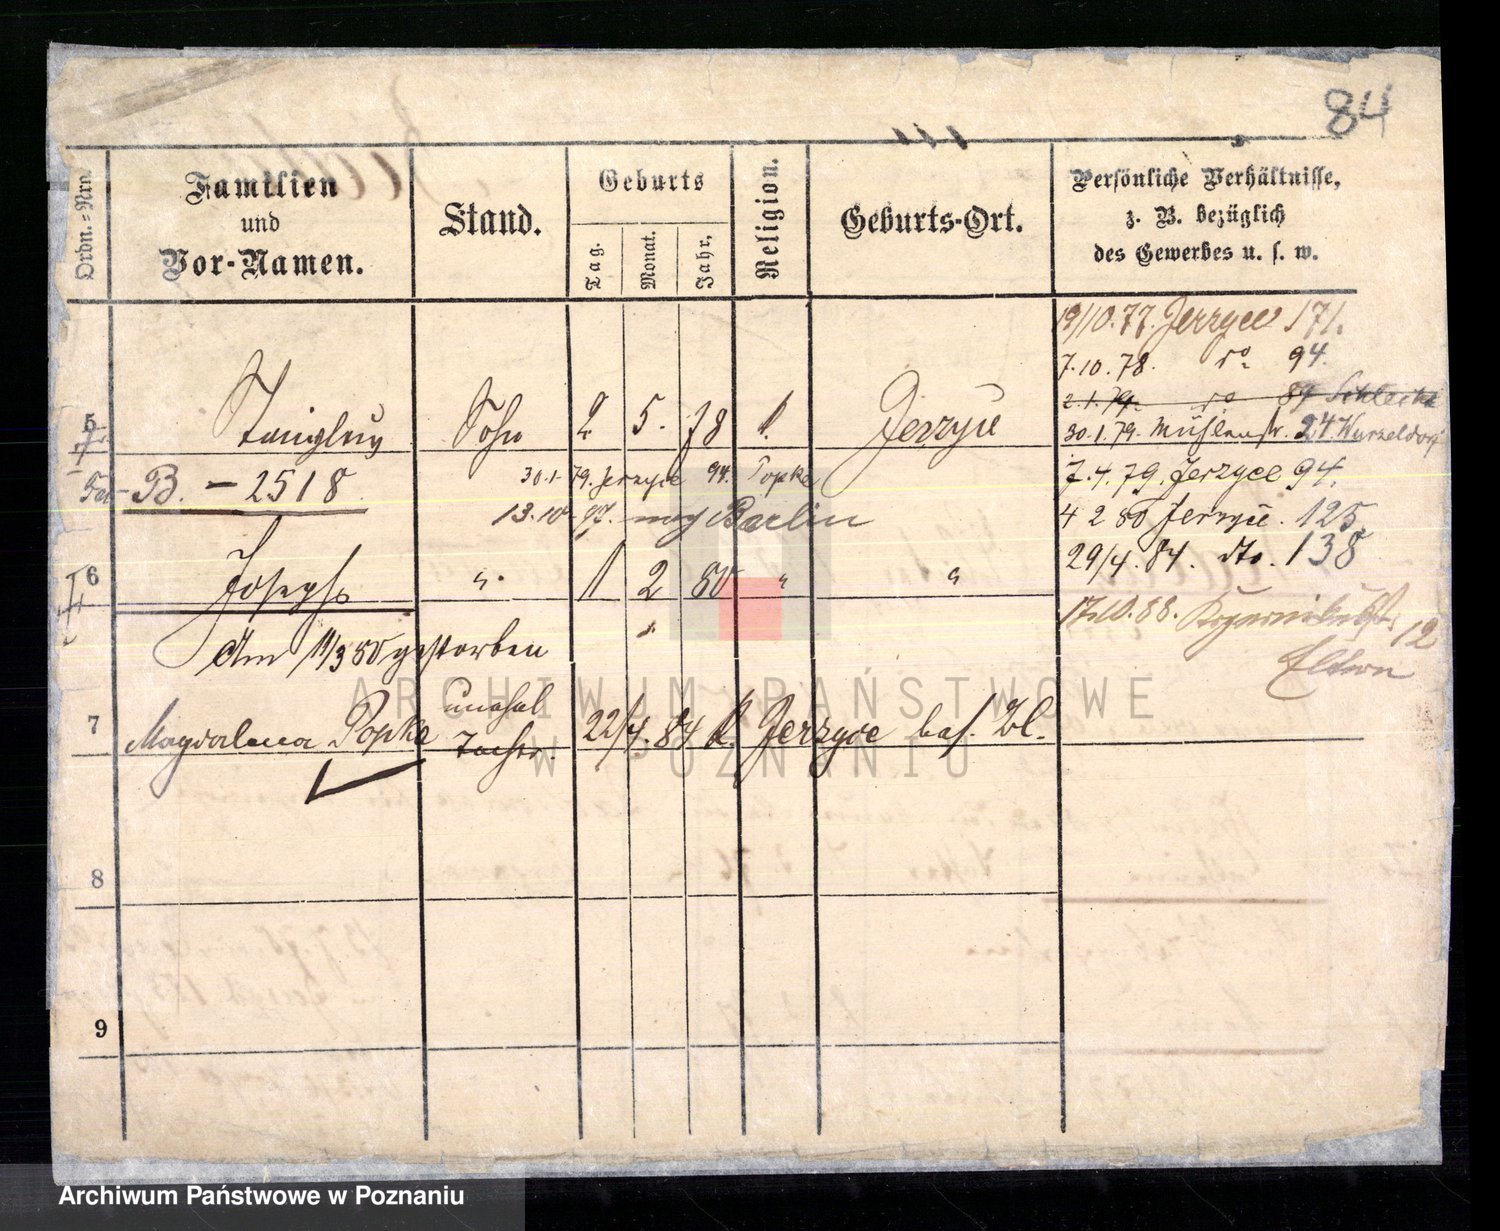 84
Ordn.=Nrn.
Familien
und
Vor-Namen.
Stand.
Geburts
Tag.
Monat.
Jahr.
Religion.
Geburts-Ort.
Persönliche Verhältnisse,
z. B. bezüglich
des Gewerbes u. s. w.
19/10.77. Jerzyce 171.
7.10.78. 94.
2.1.79. 84
5
Sohn 2 5. 78 Jerzyce
30.1.79. Mühlenstr. 24
B. - 2518
30.1.79. Jerzyce 94. Popke
7.4.79. Jerzyce 94.
13.10.97. nach Berlin
4 2 80 Jerzyce. 125.
6
Joseph " 1 2 80 " "
29/4.84. dto. 138
17.10.88. 12
Am 11/3 80 gestorben
Eltern
7
Magdalena Popke unehel Tochtr. 22/4.84 k. Jerzyce
8
9
ARCHIWUM PAŃSTWOWE
W POZNANIU
Archiwum Państwowe w Poznaniu